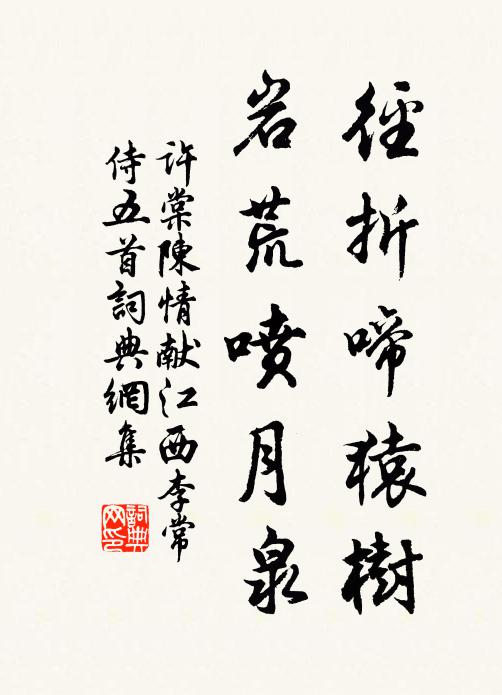 徑折啼猿樹
岩荒噴月泉
許棠陳情献江西李常
侍五首詞典網集
詞典网印